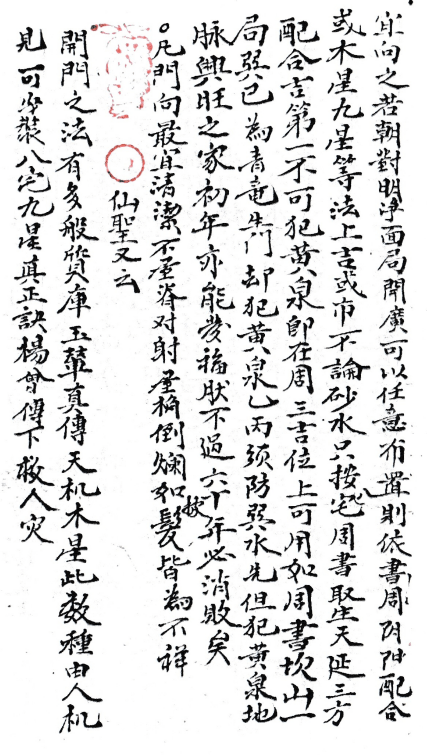 宜向之若朝對明淨面局開廣可以任意布置則依書周阴阳配合
或木星九星等法上吉或市不論砂水只按宅周書取生天延三方
配合吉第一不可犯黄泉即在周三吉位上可用如周書坎山一
局巽巳為青竜生門却犯黄泉乙丙须防巽水先但犯黄泉地
脉興旺之家初年亦能发福肰不過六十年必消敗矣
凡門向最宜清潔不屋脊对射屋桷倒爛如髮皆為不祥
仙聖又云
開門之法有多般貨庫玉輦真傳天机木星此数種由人机
見可步裝八宅九星真正訣楊曾傳下救人灾